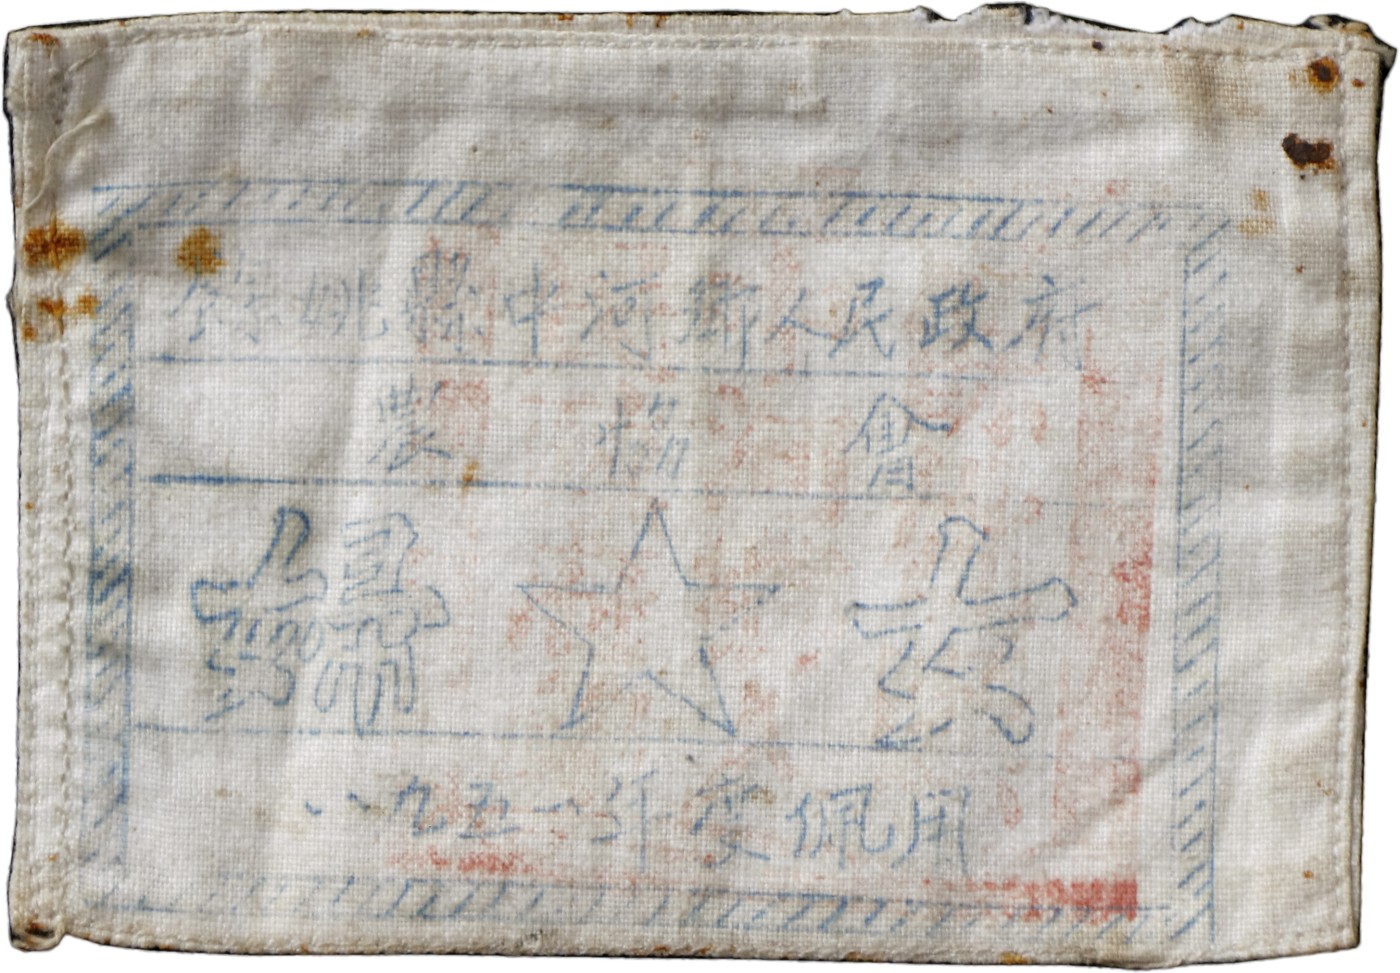 餘姚縣中河鄉人民政府
農協會
婦☆女
一九五一年度佩用